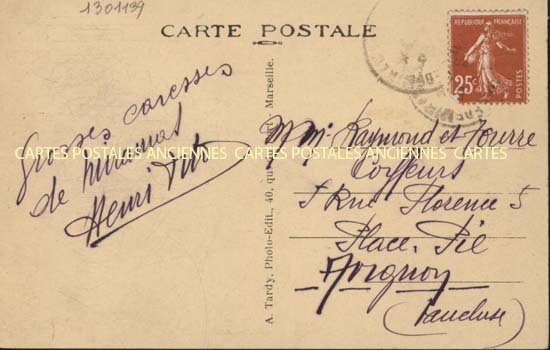 1301139
CARTE POSTALE
RÉPUBLIQUE FRANÇAISE
25c
POSTES
Grosses caresses
de Miramas
Henri
A. Tardy, Photo-Edit., 40, Marseille.
CARTES POSTALES ANCIENNES CARTES POSTALES ANCIENNES CARTES
M Mrs Raymond et Fourre
Coiffeurs
5 Rue Florence 5
Place Pie
Avignon
(Vaucluse)